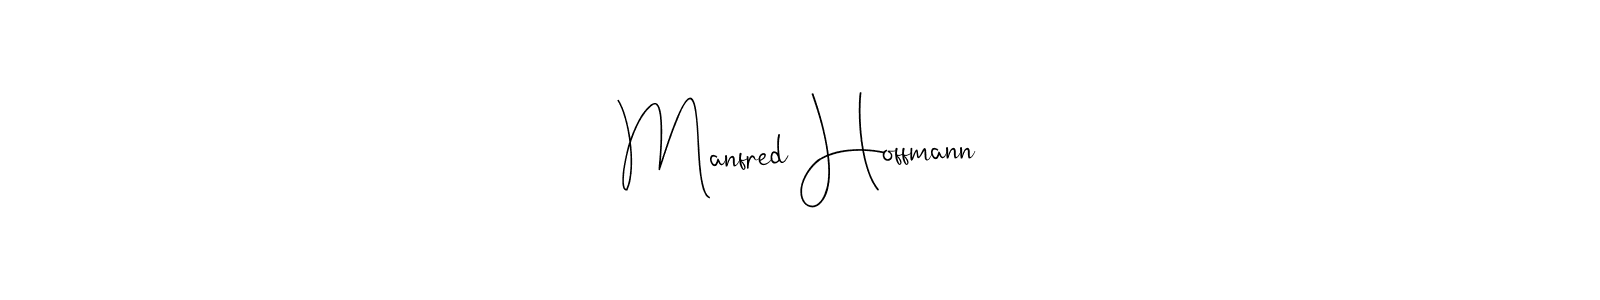 Manfred Hoffmann